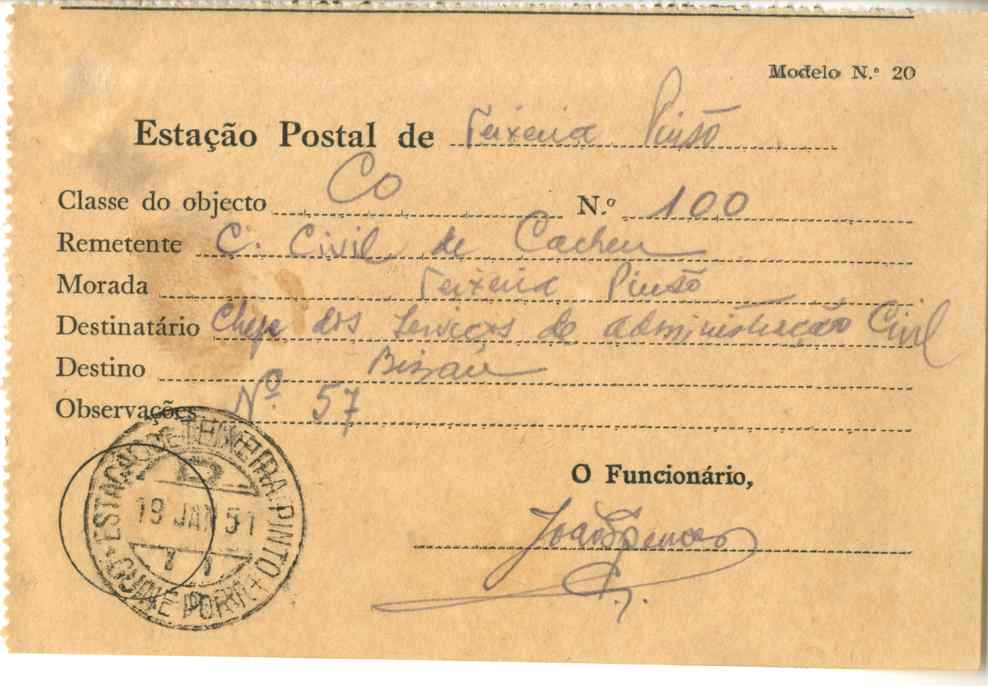 Modelo N.º 20
Estação Postal de Teixeira Pinto
Classe do objecto Co N.º 100
Remetente C. Civil de Cacheu
Morada Teixeira Pinto
Destinatário Chefe dos Serviços de administração Civil
Destino Bissau
Observações Nº 57
O Funcionário,
ESTAÇÃO DE TEIXEIRA PINTO
19 JAN 51
GUINÉ PORT.